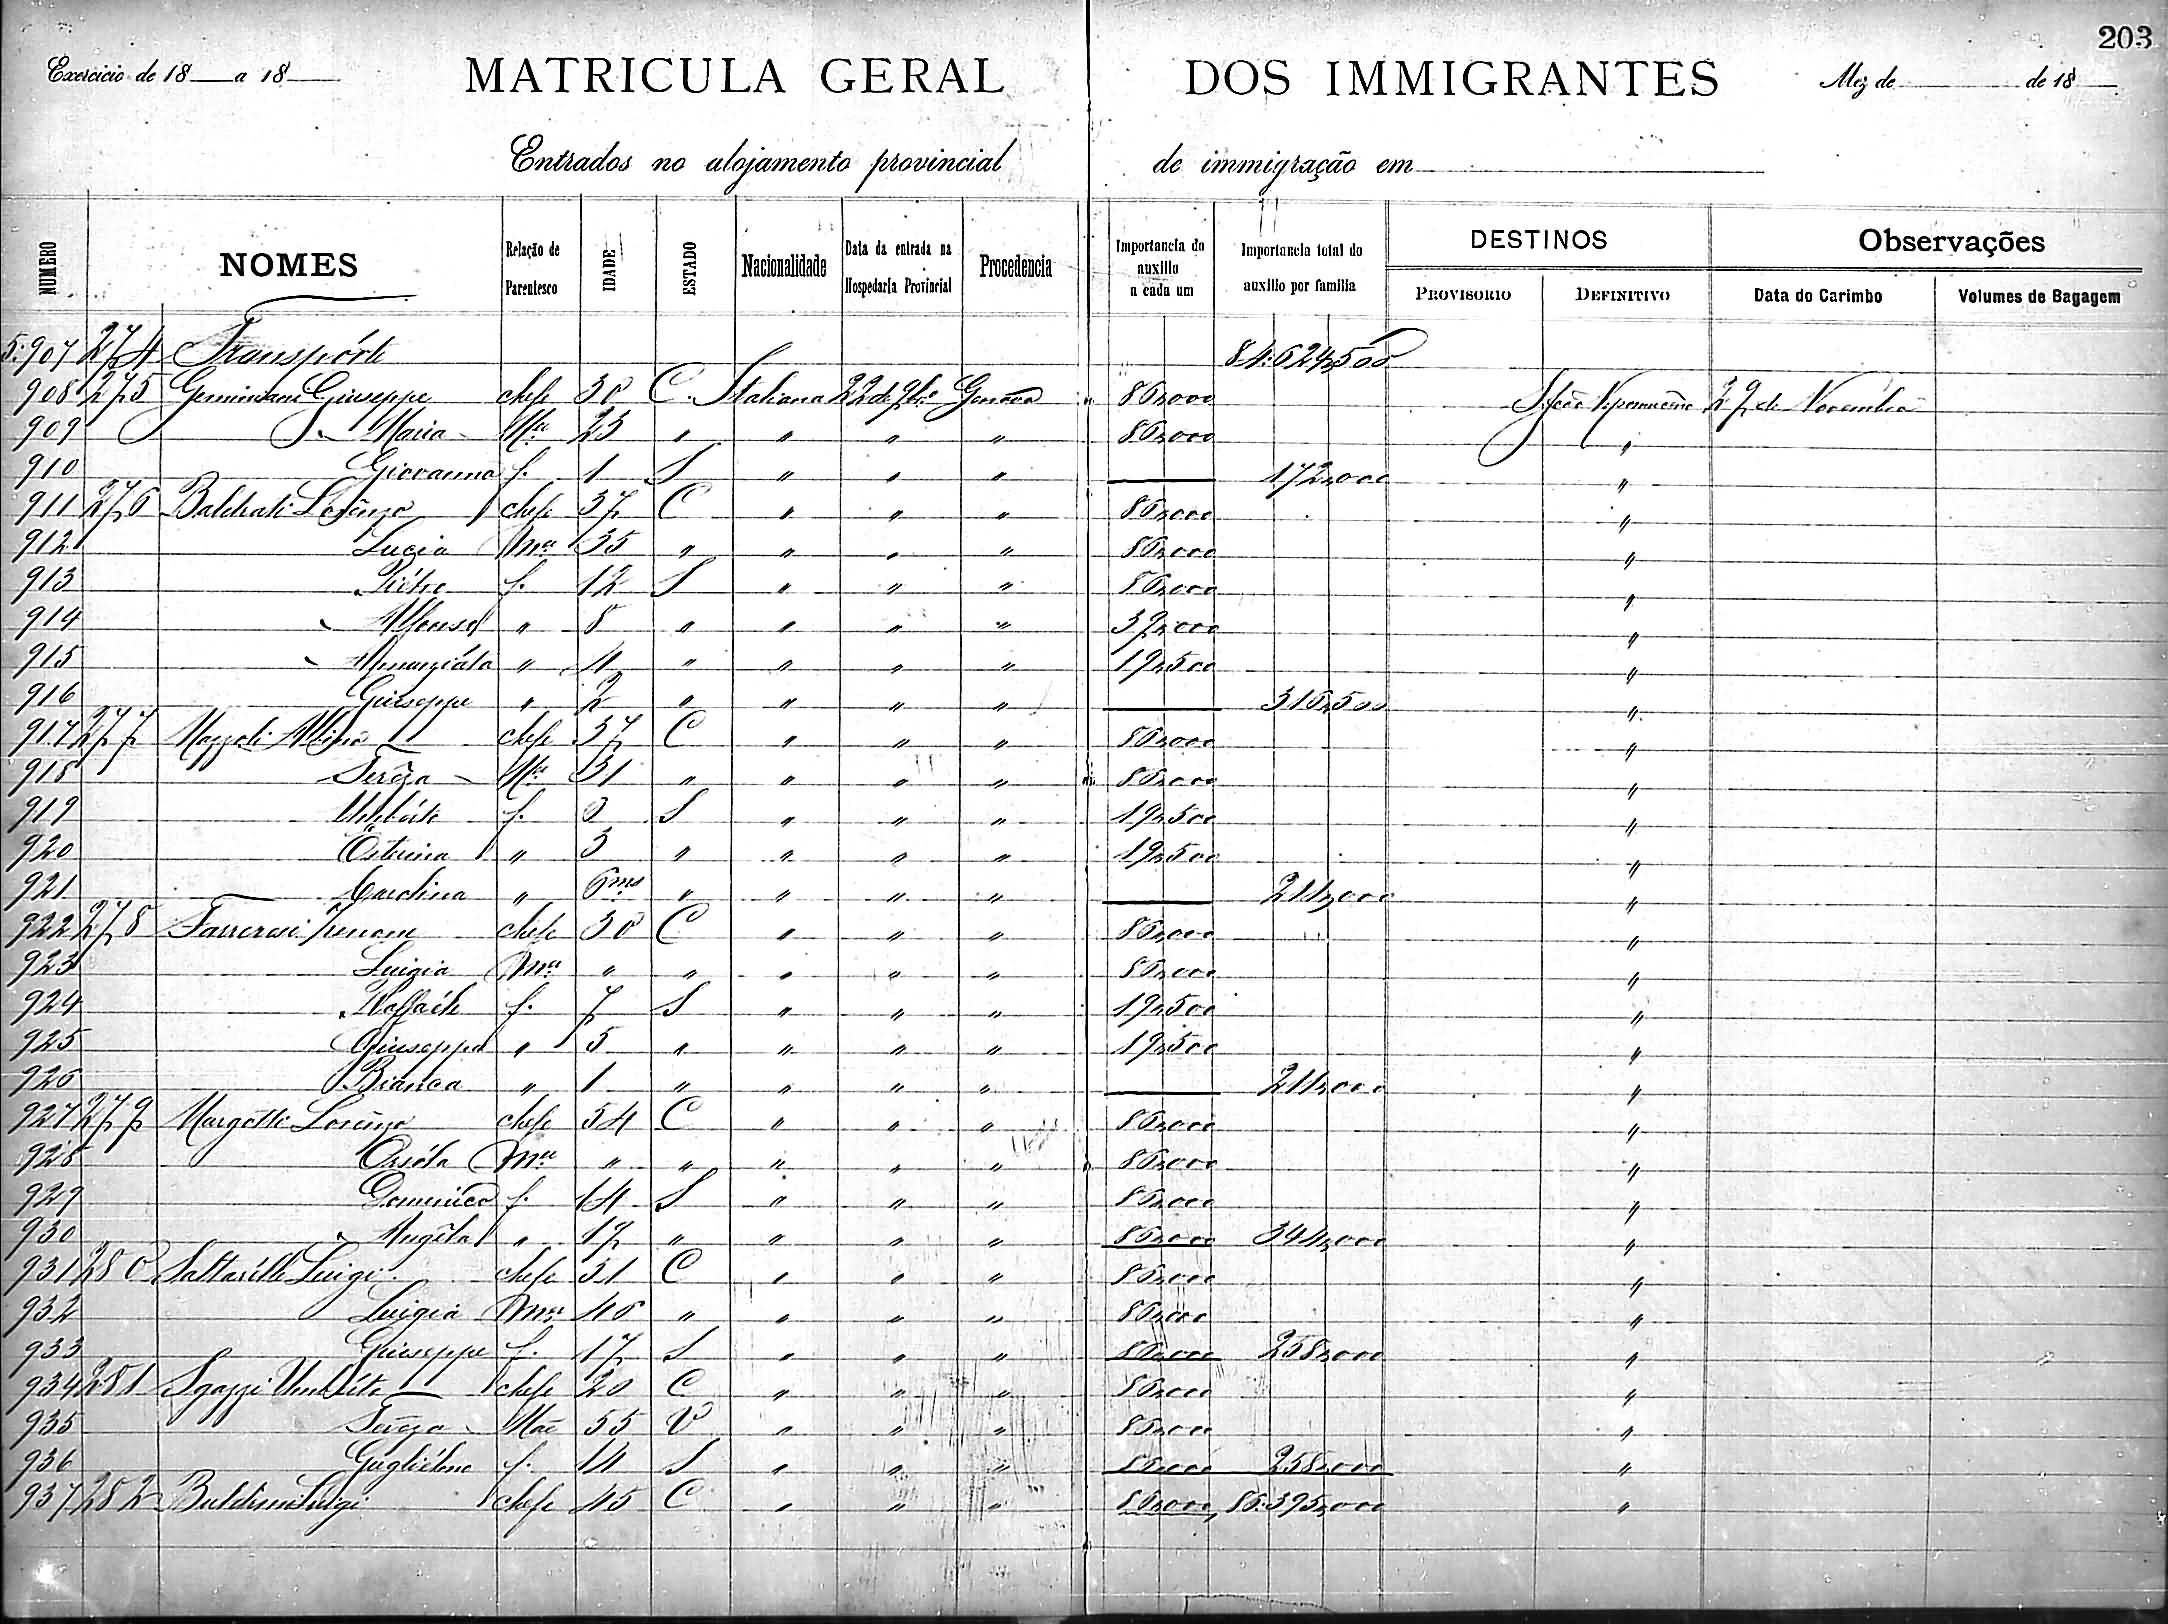 203
Exercicio de 18 a 18 MATRICULA GERAL DOS IMMIGRANTES Mez de de 18
Entrados no alojamento provincial de immigração em
NUMERO NOMES Relação de Parentesco IDADE ESTADO Nacionalidade Data da entrada na Hospedaria Provincial Procedencia Importancia do auxilio a cada um Importancia total do auxilio por familia DESTINOS PROVISORIO DEFINITIVO Observações Data do Carimbo Volumes de Bagagem
5:907 274 Transpórte 84:624,500
908 275 Geminiani Giuseppe chefe 30 C. Italiana 22 de 9bro Genova " 86,000 27 de Novembro
909 " Maria Mer 23 " " " " 86,000 "
910 Giovanna f. 1 S " " " 172,000 "
911 276 Baldrati Lorenzo chefe 37 C " " " 86,000 "
912 Lucia Mer 35 " " " " 86,000 "
913 Piétro f. 12 S " " " 86,000 "
914 " Alfonso " 8 " " " " 39,000 "
915 " Annunziáta " 4 " " " " 19,500 "
916 Giuseppe " 2 " " " " 316,500 "
917 277 Mazzoli Albino chefe 37 C " " " 86,000 "
918 Teréza Mer 31 " " " " 86,000 "
919 f. S " " " 19,500 "
920 " 3 " " " " 19,500 "
921 Carolina " 6 ms " " " " 211,000 "
922 278 chefe 30 C " " " 86,000 "
923 Luigia Mer " " " " " 86,000 "
924 f. 7 S " " " 19,500 "
925 Giuseppe " 5 " " " " 19,500 "
926 Bianca " 1 " " " " 211,000 "
927 279 Margótti Lorenzo chefe 54 C " " " 86,000 "
928 Orsóla Mer " " " " " 86,000 "
929 Domenico f. 14 S " " " 86,000 "
930 " Angéla " 17 " " " " 86,000 344,000 "
931 280 Saltarélli Luigi chefe 51 C " " " 86,000 "
932 Luigia Mer 40 " " " " 86,000 "
933 Giuseppe f. 17 S " " " 86,000 258,000 "
934 281 Sgazzi chefe 20 C " " " 86,000 "
935 Tereza Mãe 55 V " " " 86,000 "
936 Gugliélmo f. 14 S " " " 86,000 258,000 "
937 282 Luigi chefe 45 C " " " 86,000 86:395,000 "